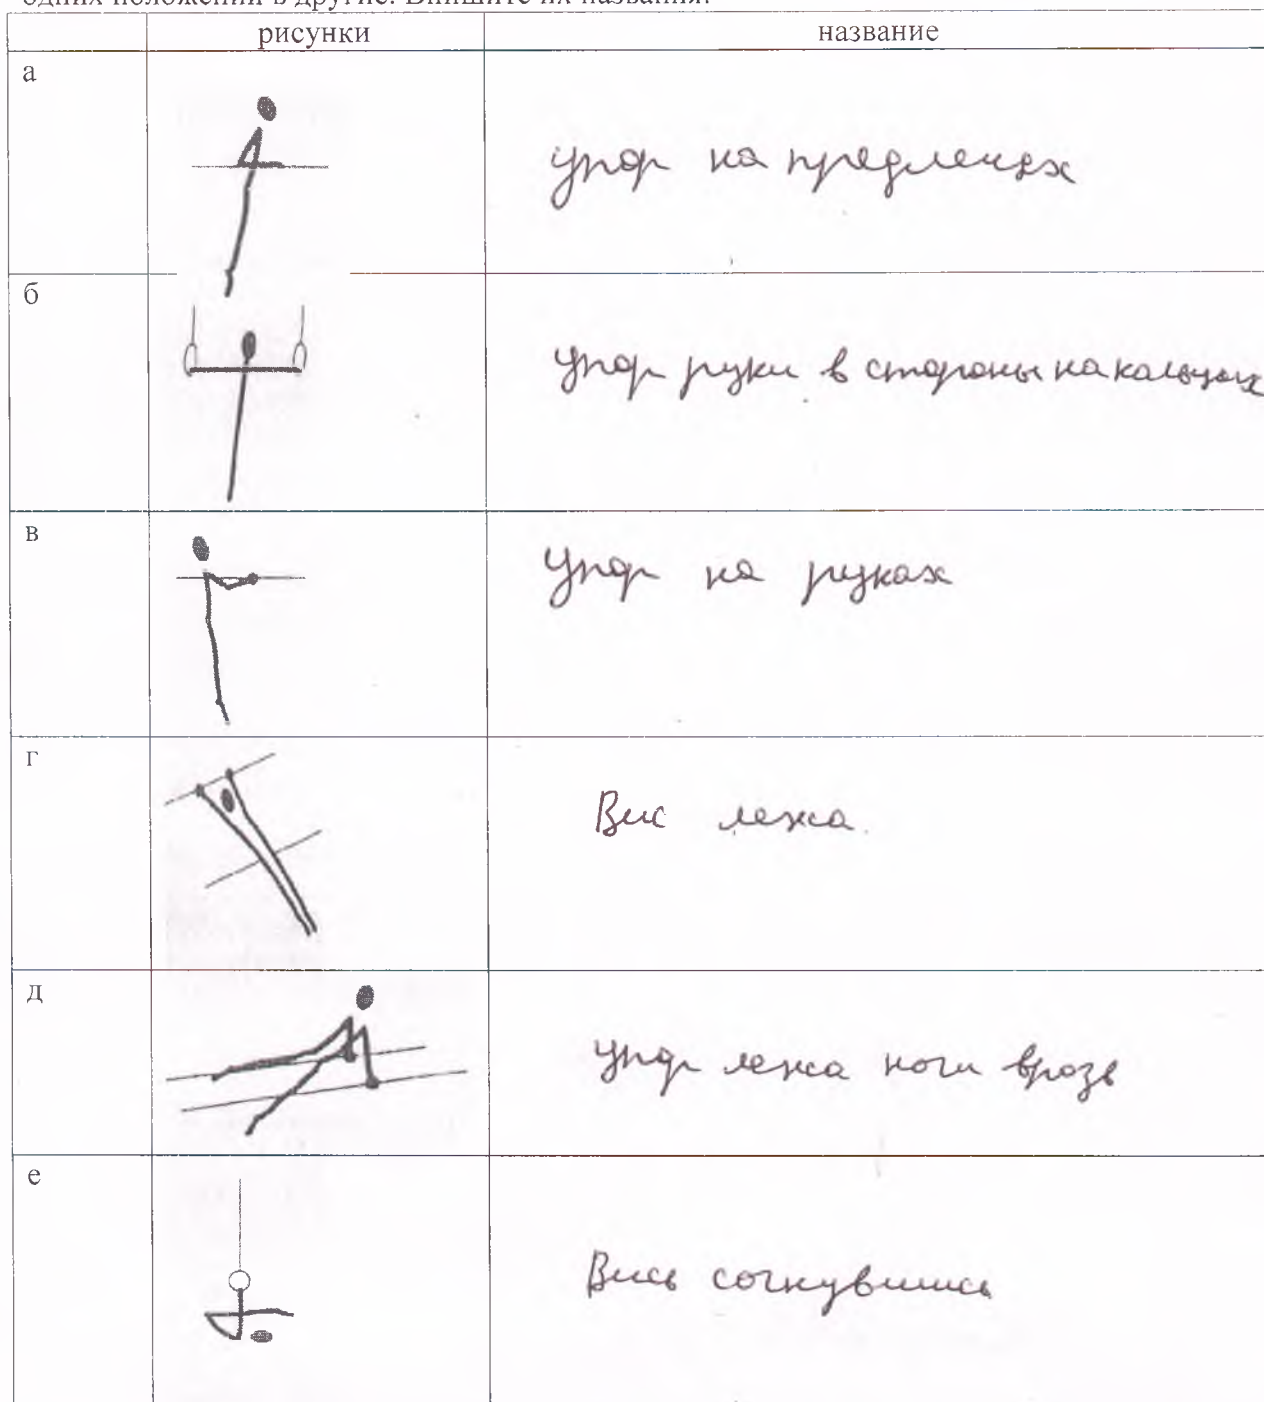 одних положений в другие. Впишите их названия.
рисунки название
а упор на предплечьях
б Упор руки в стороны на кольцах
в Упор на руках
г Вис лежа.
д упор лежа ноги врозь
е Вись согнувшись